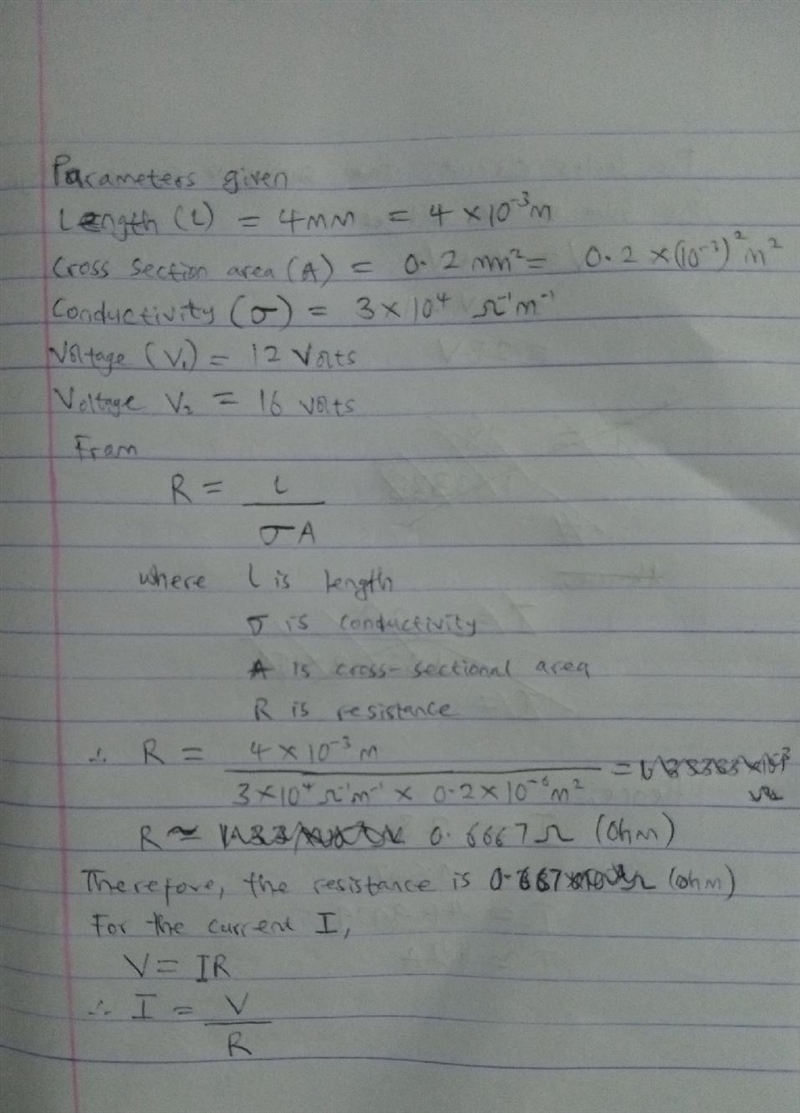 Parameters given
Length (L) = 4mm = 4 × 10⁻³m
Cross Section area (A) = 0.2 mm² = 0.2 × (10⁻³)² m²
Conductivity (σ) = 3 × 10⁴ Ω⁻¹m⁻¹
Voltage (V₁) = 12 Volts
Voltage V₂ = 16 volts
From
R = L / σA
where l is length
σ is conductivity
A is cross-sectional area
R is resistance
∴ R = 4 × 10⁻³ m / 3 × 10⁴ Ω⁻¹m⁻¹ × 0.2 × 10⁻⁶ m² =
R ≈ 0.6667 Ω (Ohm)
Therefore, the resistance is 0.667 Ω (ohm)
For the current I,
V = IR
∴ I = V / R